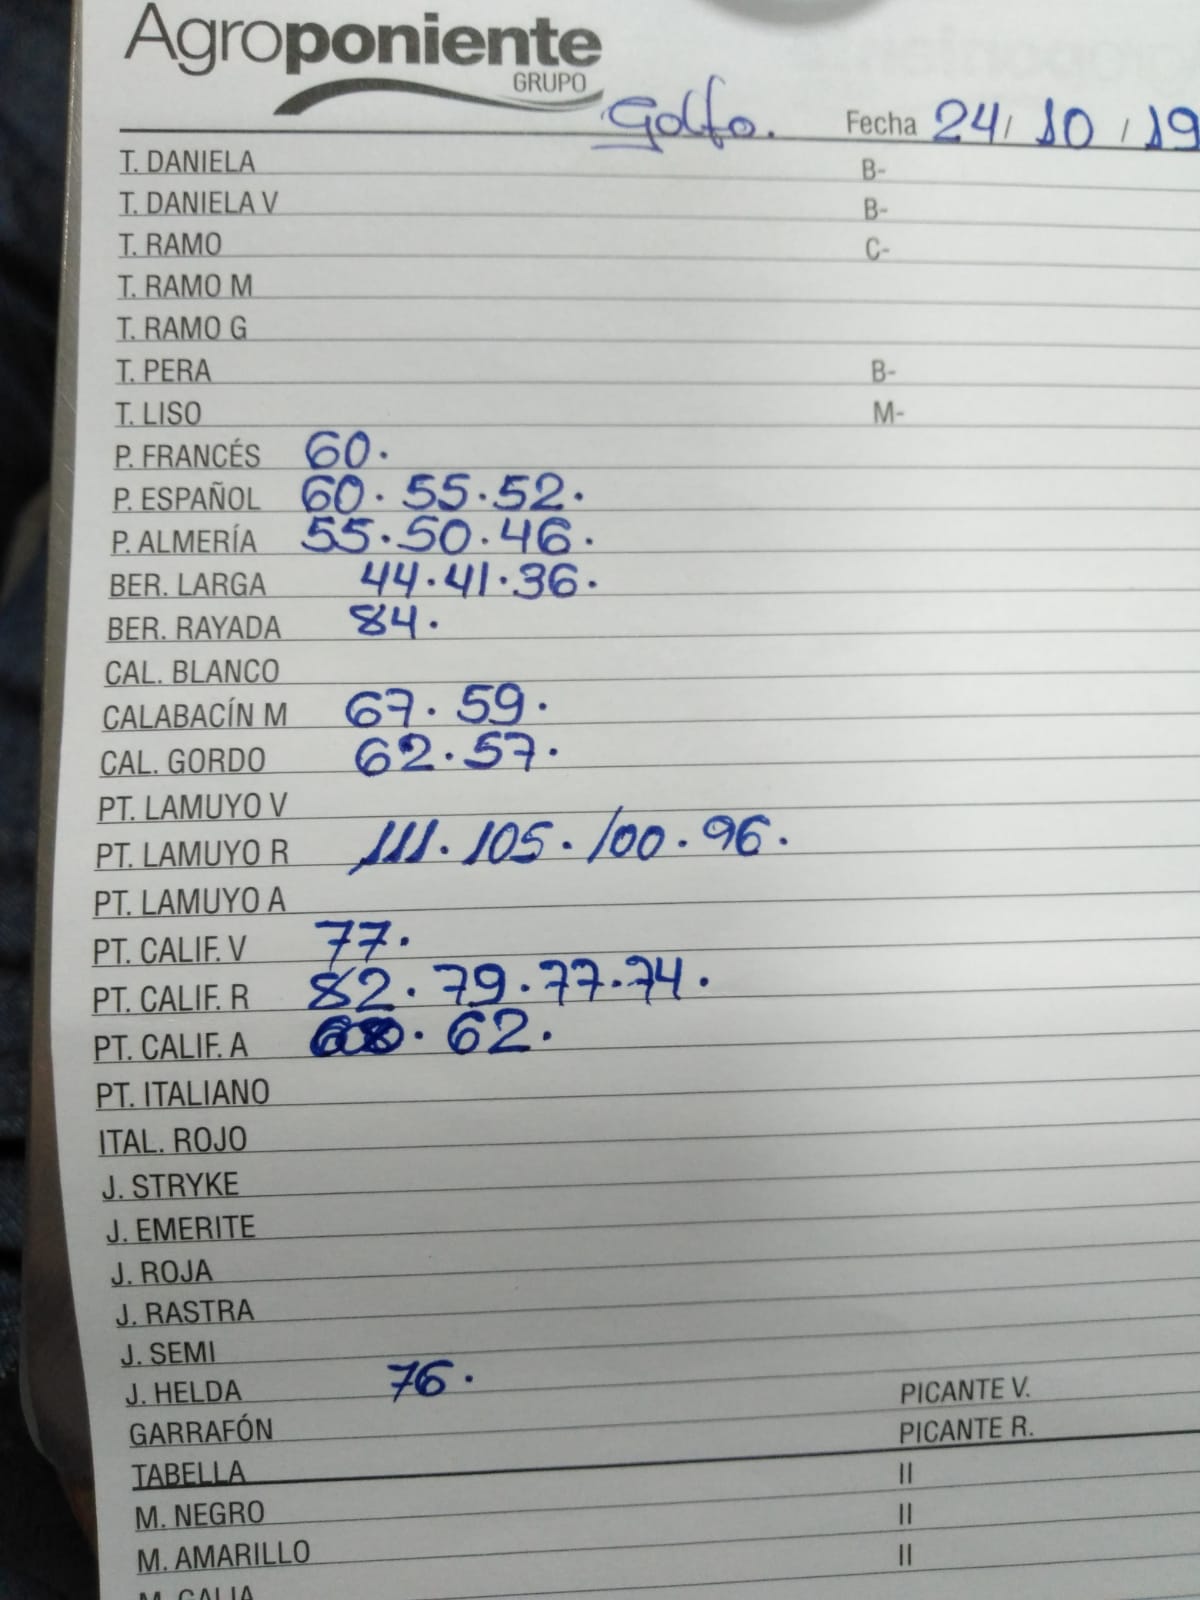 Agroponiente
GRUPO
Golfo. Fecha 24/ 10 / 19
T. DANIELA B-
T. DANIELA V B-
T. RAMO C-
T. RAMO M
T. RAMO G
T. PERA B-
T. LISO M-
P. FRANCÉS 60.
P. ESPAÑOL 60. 55. 52.
P. ALMERÍA 55. 50. 46.
BER. LARGA 44. 41. 36.
BER. RAYADA 84.
CAL. BLANCO
CALABACÍN M 67. 59.
CAL. GORDO 62. 57.
PT. LAMUYO V
PT. LAMUYO R 111. 105. 100. 96.
PT. LAMUYO A
PT. CALIF. V 77.
PT. CALIF. R 82. 79. 77. 74.
PT. CALIF. A 62.
PT. ITALIANO
ITAL. ROJO
J. STRYKE
J. EMERITE
J. ROJA
J. RASTRA
J. SEMI
J. HELDA 76. PICANTE V.
GARRAFÓN PICANTE R.
TABELLA II
M. NEGRO II
M. AMARILLO II